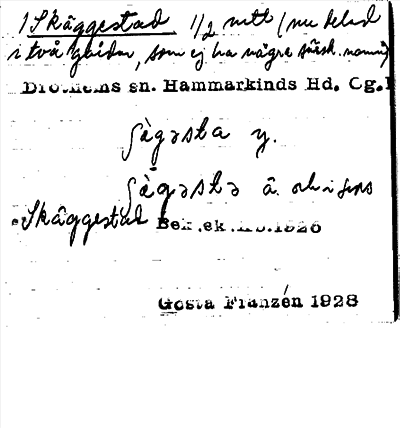 1 Skäggestad 1/2 mtl (nu delad
i två gårdar, som ej ha några särsk. namn)
Drothems sn. Hammarkinds Hd. Ög.
ʃàgəsta y.
ʃàgəstə ä. och i sms
Skäggestad Bek.ek. 1926
Gösta Franzén 1928